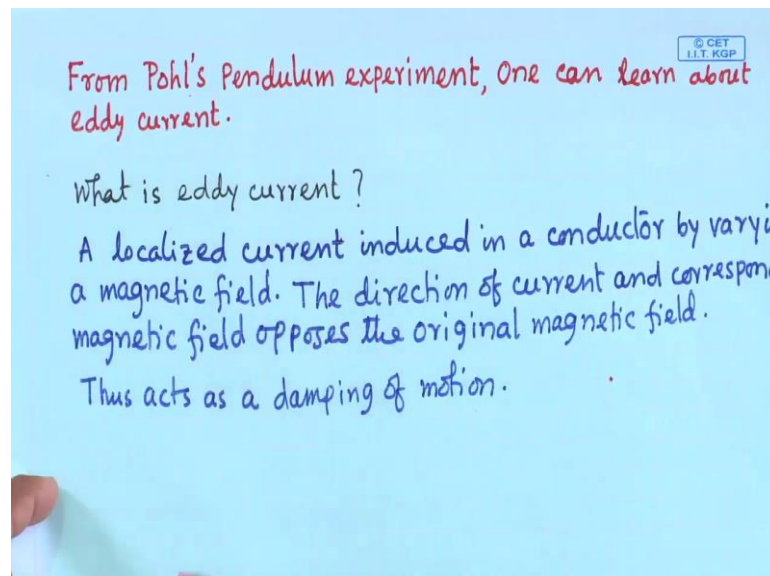 © CET
I.I.T. KGP
From Pohl's Pendulum experiment, One can learn about
eddy current.
What is eddy current ?
A localized current induced in a conductor by varyi
a magnetic field. The direction of current and correspon
magnetic field opposes the original magnetic field.
Thus acts as a damping of motion.